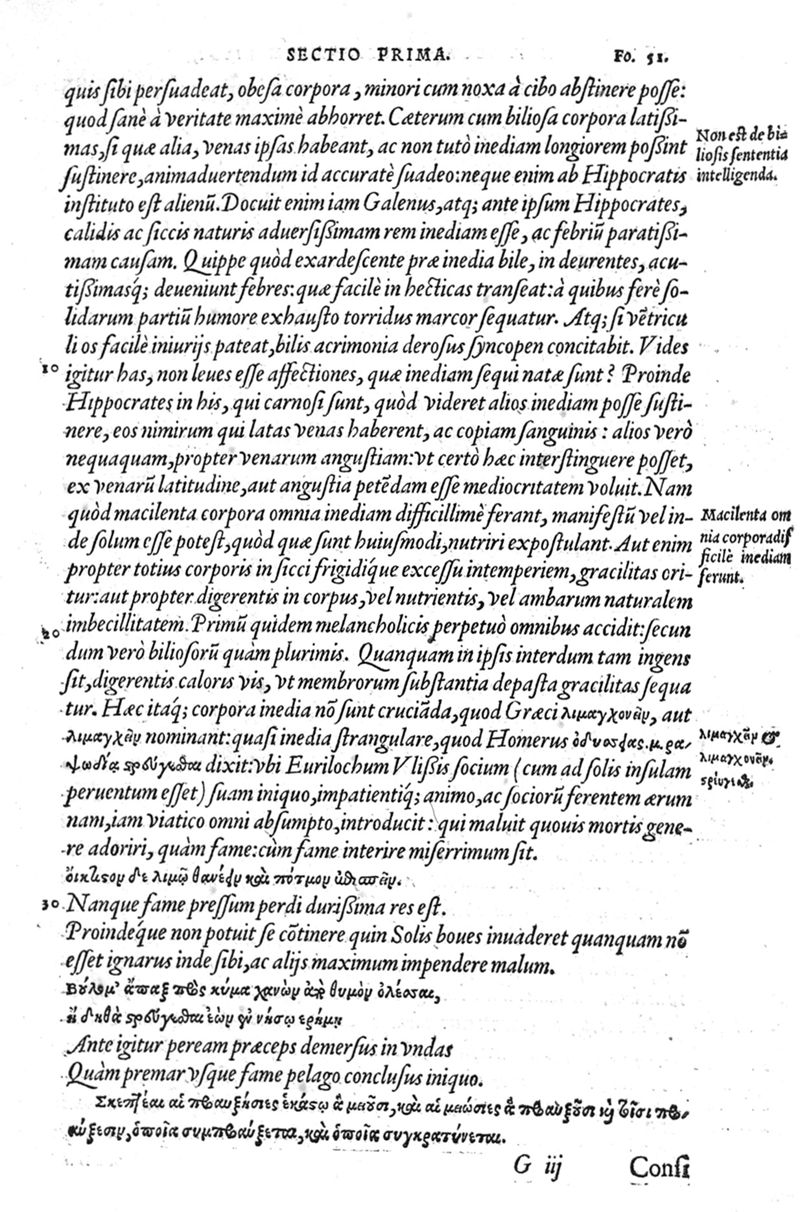 SECTIO PRIMA. Fo. 51.
quis sibi persuadeat, obesa corpora, minori cum noxa à cibo abstinere posse:
quod sanè à veritate maximè abhorret. Cæterum cum biliosa corpora latissi-
mas, si quæ alia, venas ipsas habeant, ac non tutò inediam longiorem possint
sustinere, animaduertendum id accuratè suadeo: neque enim ab Hippocratis
instituto est alienũ. Docuit enim iam Galenus, atq; ante ipsum Hippocrates,
calidis ac siccis naturis aduersissimam rem inediam esse, ac febriũ paratissi-
mam causam. Quippe quòd exardescente præ inedia bile, in deurentes, acu-
tissimasq́; deueniunt febres: quæ facilè in hecticas transeat: à quibus ferè so-
lidarum partiũ humore exhausto torridus marcor sequatur. Atq; si vẽtricu
li os facilè iniurijs pateat, bilis acrimonia derosus syncopen concitabit. Vides
10 igitur has, non leues esse affectiones, quæ inediam sequi natæ sunt? Proinde
Hippocrates in his, qui carnosi sunt, quòd videret alios inediam posse susti-
nere, eos nimirum qui latas venas haberent, ac copiam sanguinis: alios verò
nequaquam, propter venarum angustiam: vt certò hæc interstinguere posset,
ex venarũ latitudine, aut angustia petẽdam esse mediocritatem voluit. Nam
quòd macilenta corpora omnia inediam difficillimè ferant, manifestũ vel in-
de solum esse potest, quòd quæ sunt huiusmodi, nutriri expostulant. Aut enim
propter totius corporis in sicci frigidiq́ue excessu intemperiem, gracilitas ori-
tur: aut propter digerentis in corpus, vel nutrientis, vel ambarum naturalem
20 imbecillitatem. Primũ quidem melancholicis perpetuò omnibus accidit: secun
dum verò biliosorũ quàm plurimis. Quanquam in ipsis interdum tam ingens
sit, digerentis caloris vis, vt membrorum substantia depasta gracilitas sequa
tur. Hæc itaq́; corpora inedia nõ sunt cruciãda, quod Græci λιμαγχονεῖν, aut
λιμαγχεῖν nominant: quasi inedia strangulare, quod Homerus ὀδυσσείας. μ. ρα-
ψωδίᾳ στρεύγεσθαι dixit: vbi Eurilochum Vlissis socium (cum ad solis insulam
peruentum esset) suam iniquo, impatientiq́; animo, ac sociorũ ferentem ærum
nam, iam viatico omni absumpto, introducit: qui maluit quouis mortis gene-
re adoriri, quàm fame: cùm fame interire miserrimum sit.
οἴκτιστον δὲ λιμῷ θανέειν καὶ πότμον ἐπισπεῖν.
30 Nanque fame pressum perdi durissima res est.
Proindeq́ue non potuit se cõtinere quin Solis boues inuaderet quanquam nõ
esset ignarus inde sibi, ac alijs maximum impendere malum.
Βούλομ' ἅπαξ πρὸς κύμα χανὼν ἀπὸ θυμὸν ὀλέσσαι,
ἢ δηθὰ στρεύγεσθαι ἐὼν ἐν νήσῳ ἐρήμῃ
Ante igitur peream præceps demersus in vndas
Quàm premar vsque fame pelago conclusus iniquo.
Σκεπτέαι αἱ προαυξήσιες ἑκάστῳ ἃ μειοῦσι, καὶ αἱ μειώσιες ἃ προαυξοῦσι κῃ τοῖσι προ-
αύξεσιν, ὁποῖα συμπροαύξεται, καὶ ὁποῖα συγκρατύνεται.
G iij Consi
Non est de bi=
liosis sententia
intelligenda.
Macilenta om
nia corpora dif
ficilè inediam
ferunt.
λιμαγχεῖν &
λιμαγχονεῖν.